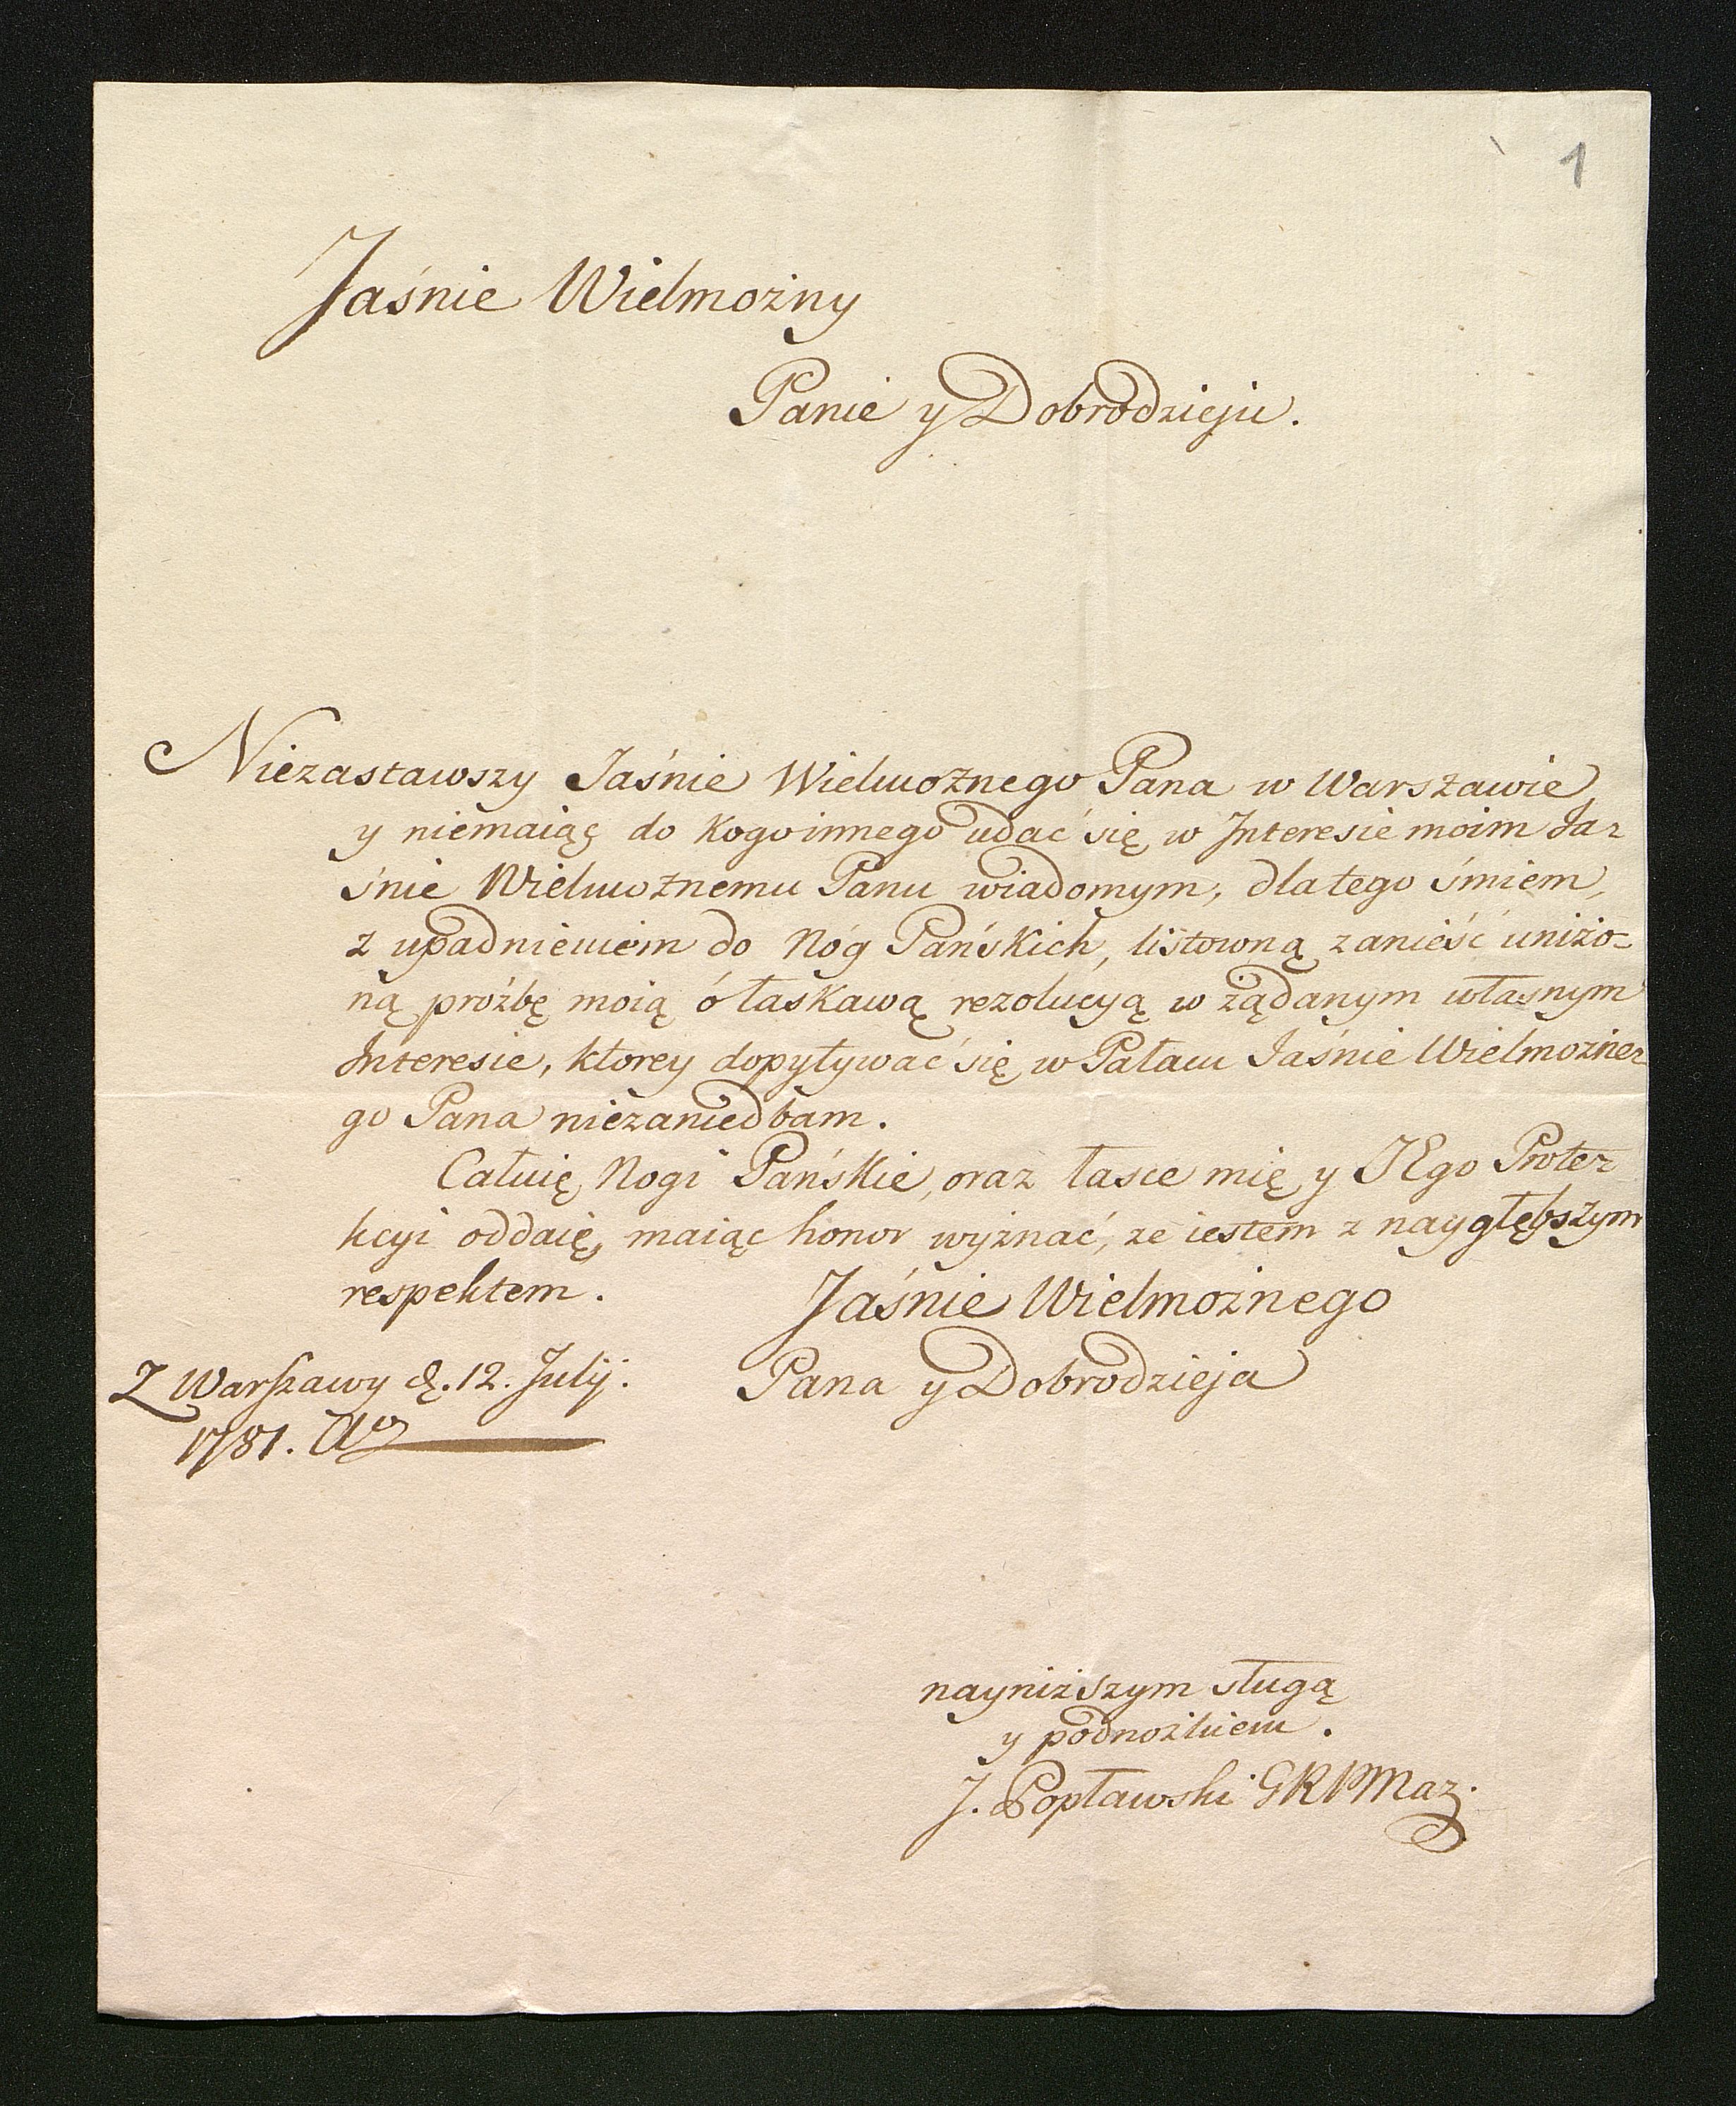 1
Jaśnie Wielmożny
Panie y Dobrodzieju.
Niezastawszy Jaśnie Wielmożnego Pana w Warszawie
y niemaiąc do kogo innego udać się w Interesie moim Ja-
śnie Wielmożnemu Panu wiadomym, dlatego śmiem,
z upadnieniem do Nóg Pańskich, listowną zanieść uniżo-
ną proźbę moią ó łaskawą rezolucyą w żądanym własnym
Interesie, ktorey dopytywać się w Pałacu Jaśnie Wielmożne-
go Pana niezaniedbam.
Całuię Nogi Pańskie, oraz łasce mię y JEgo Prote-
kcyi oddaię, maiąc honor wyznać, że iestem z naygłębszym
respektem.
Jaśnie Wielmożnego
Pana y Dobrodzieja
Z Warszawy d. 12. Julij.
1781. Ao
nayniższym sługą
y podnożkiem.
J. Popławski GRPMaz.